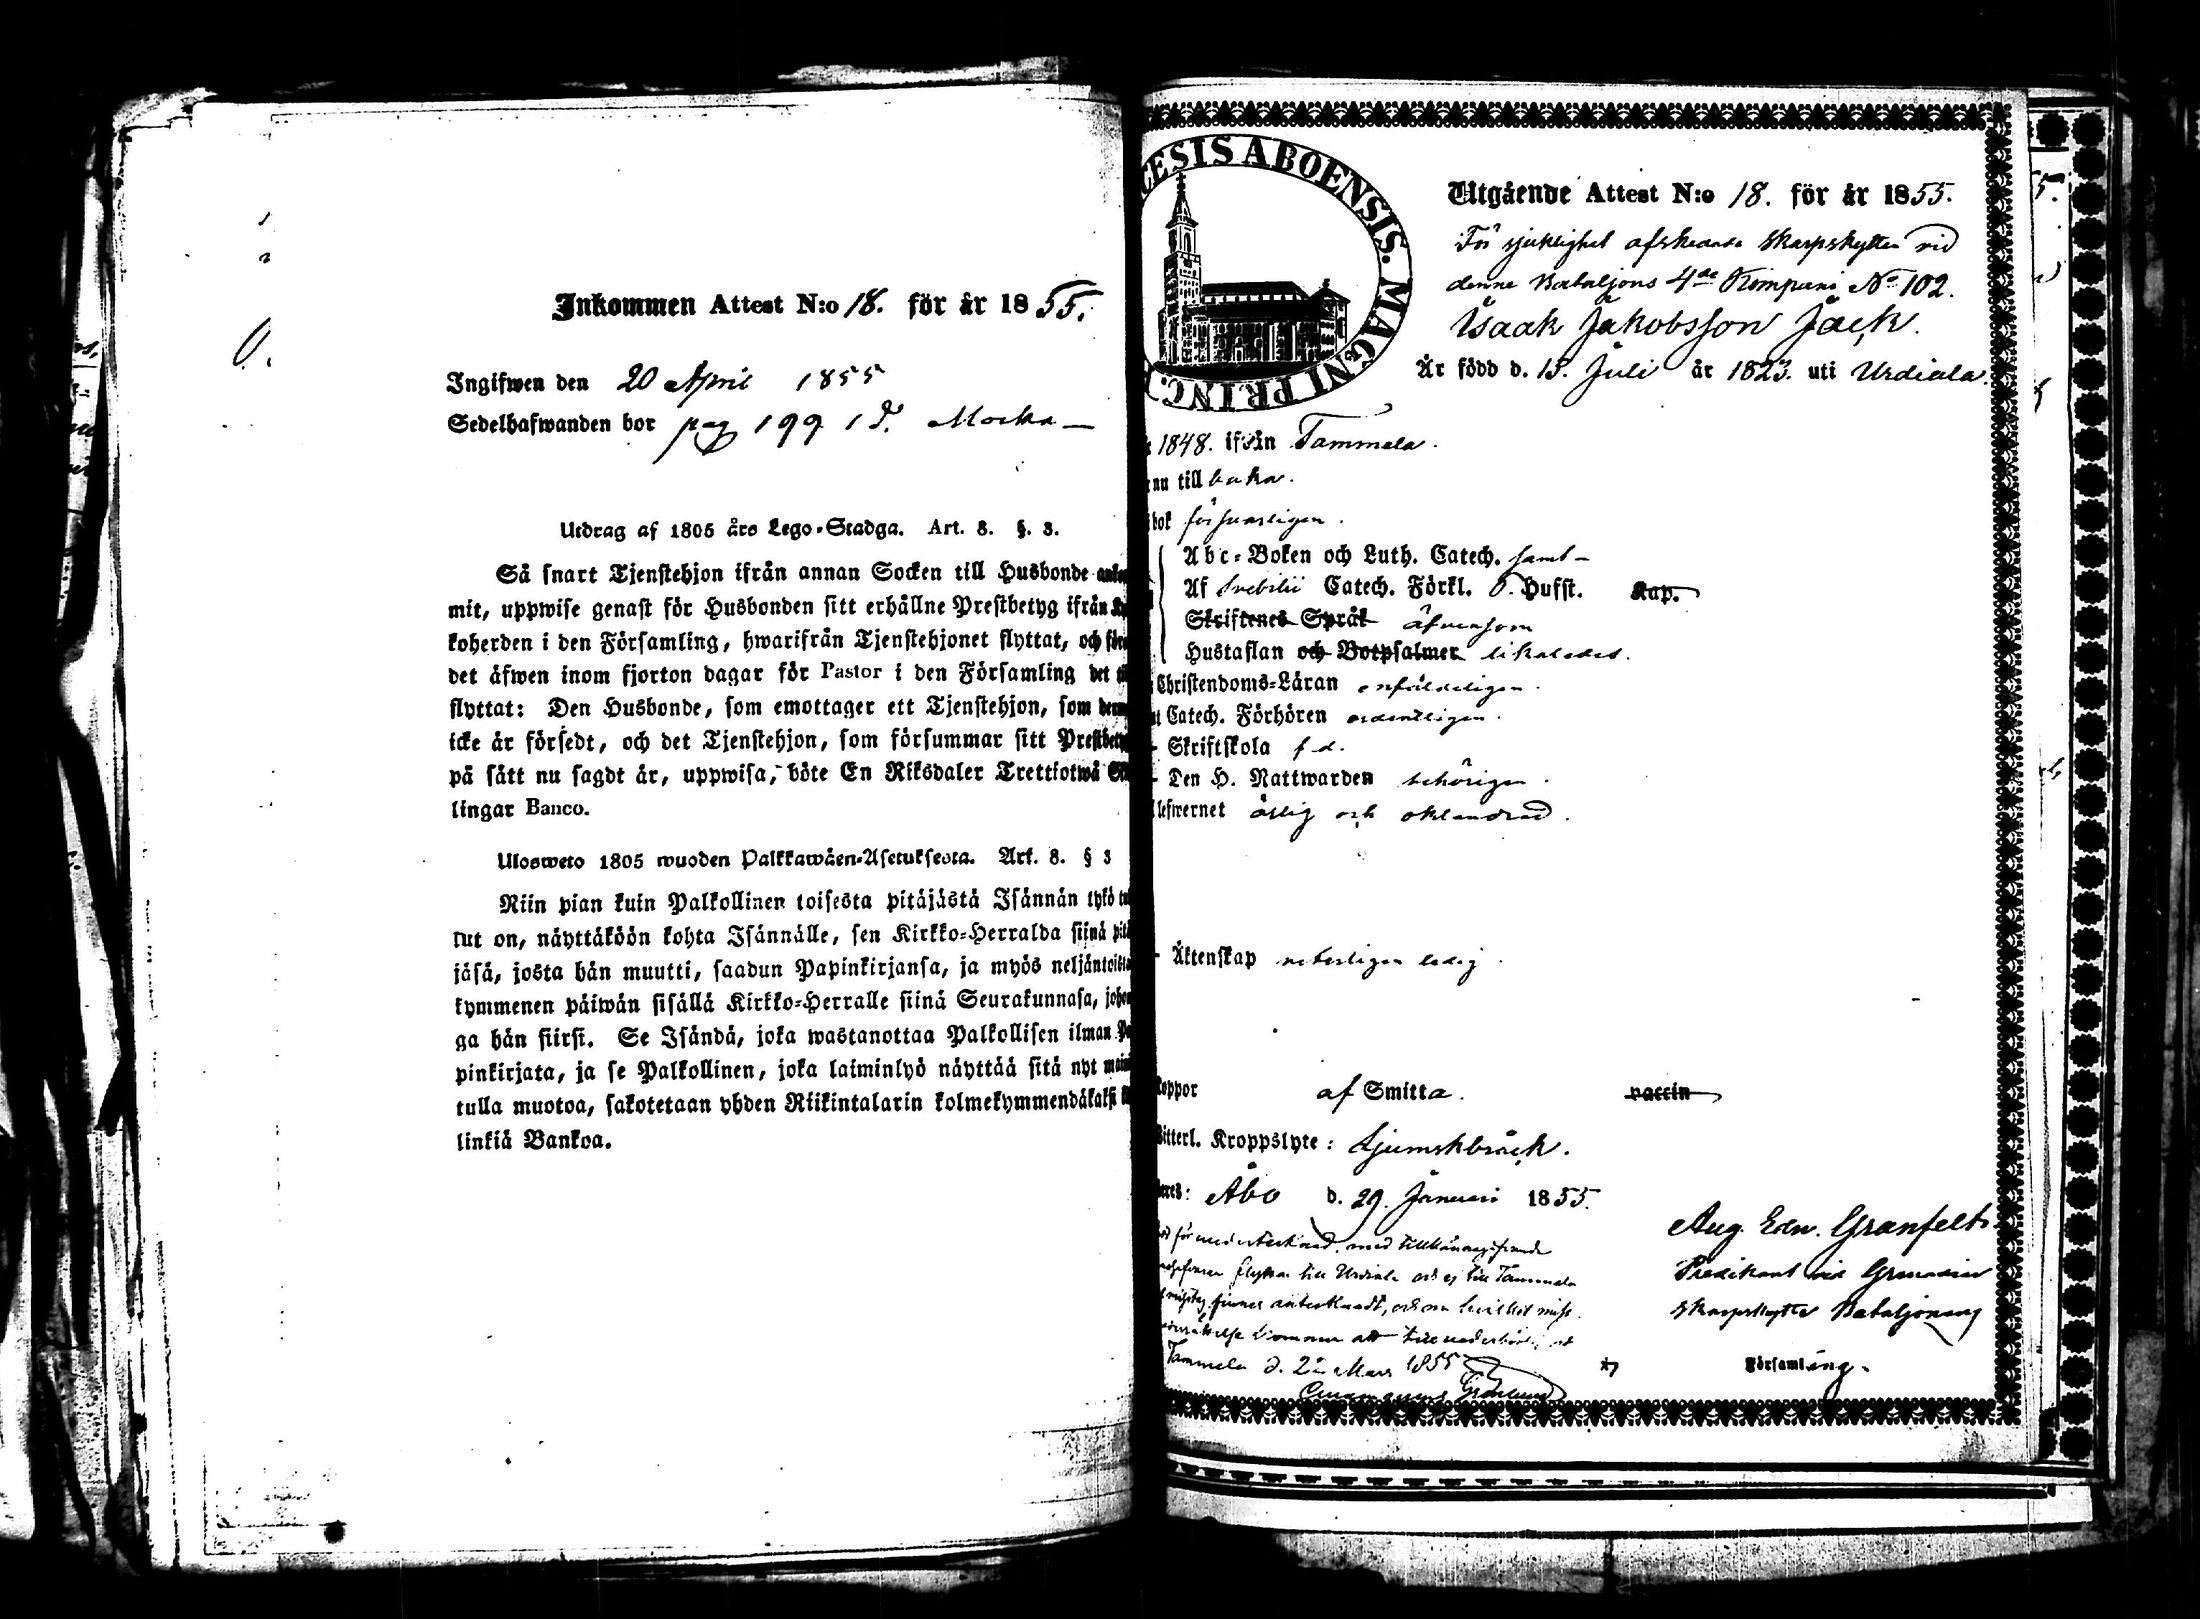 Inkommen Attest N:o 18. för år 1855.
Ingifwen den 20 April 1855
Sedelhafwanden bor pag 199 Mocka
Utdrag af 1805 års Lego-Stadga. Art. 8. §. 3.
Så snart Tjenstehjon ifrån annan Socken till Husbonde
mit, uppwise genast för Husbonden sitt erhållne Prestbetyg ifrån
koherden i den Församling, hwarifrån Tjenstehjonet flyttat, och
det äfwen inom fjorton dagar för Pastor i den Församling det
flyttat: Den Husbonde, som emottager ett Tjenstehjon, som
icke är försedt, och det Tjenstehjon, som försummar sitt
på sätt nu sagdt är, uppwisa, böte En Riksdaler Trettiotwå
lingar Banco.
Ulosweto 1805 wuoden Palkkawäen-Asetuksesta. Art. 8. § 3
Niin pian kuin Palkollinen toisesta pitäjästä Isännän tykö
lut on, näyttäköön kohta Isännälle, sen Kirkko-Herralda siinä
jäsä, josta hän muutti, saadun Papinkirjansa, ja myös
kymmenen päiwän sisällä Kirkko-Herralle siinä Seurakunnasa,
ga hän siirsi. Se Isändä, joka wastanottaa Palkollisen ilman
pinkirjata, ja se Palkollinen, joka laiminlyö näyttää sitä nyt
tulla muotoa, sakotetaan yhden Riikintalarin kolmekymmendäkaksi
linkiä Bankoa.
ABOENSIS. MAGNI PRINC.
Utgående Attest N:o 18. för år 1855.
För sjuklighet afskedade Skarpskytten vid
denne Bataljons 4de Kompani No 102.
Isaak Jakobsson Jäck.
Är född d. 15. Juli år 1823. uti Urdiala.
1848. ifrån Tammela.
nu till baka.
bok försvarligen.
Abc-Boken och Luth. Catech. samt
Af Svebilii Catech. Förkl. Hufst. Kap.
Skriftenes Språk äfvensom
Hustaflan och Botpsalmer likaledes.
Christendoms-Läran enfaldeligen.
Catech. Förhören ordentligen.
Skriftskola
Den H. Nattwarden behörigen.
lefwernet ärlig och oklandrad.
Äktenskap veterligen ledig.
Koppor af Smitta. vaccin
Witterl. Kroppslyte: Ljumskbråck.
Åbo d. 29. Januari 1855.
Aug. Edv. Granfelt
Predikant vid Grenadier
Skarpskytte Bataljonens
Församling.
med tillkännagifvande
flyttar till Urdiala och ej till Tammela
Tammela d. 22 Mars 1855